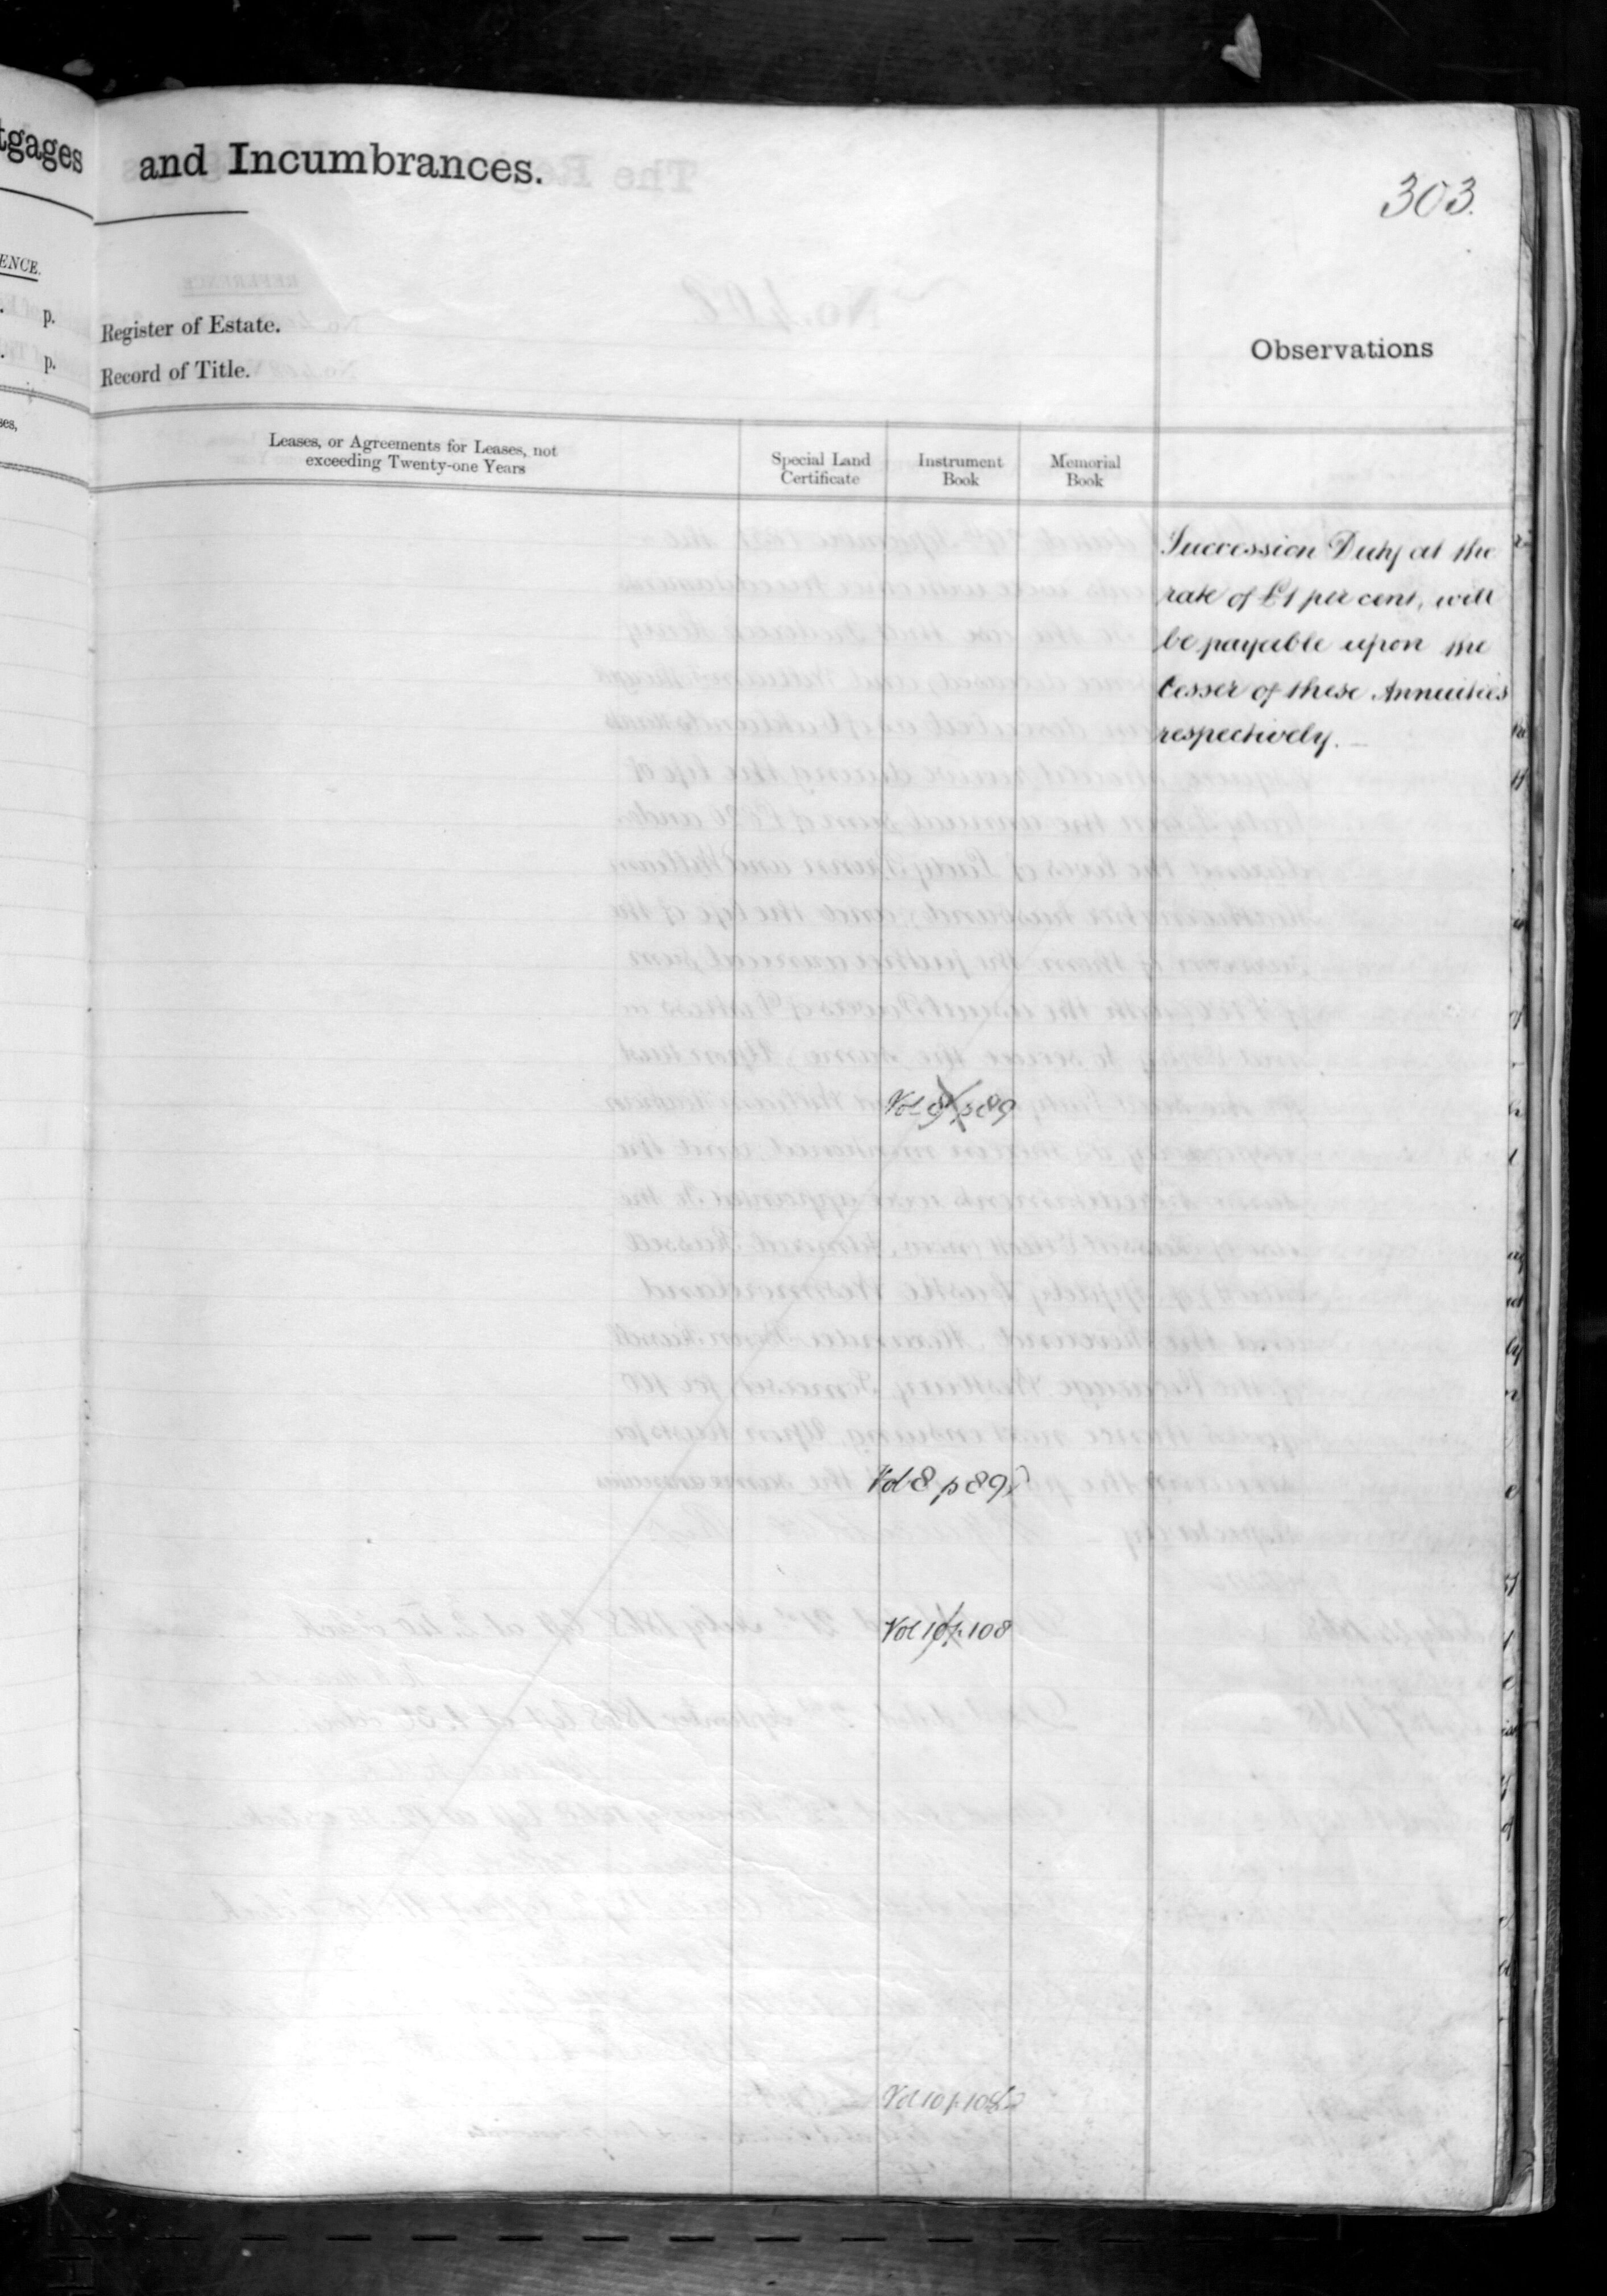 tgages
and Incumbrances.
303.
ENCE.
p.
Register of Estate.
p.
Record of Title.
Observations
ses,
Leases, or Agreements for Leases, not
exceeding Twenty-one Years
Special Land
Certificate
Instrument
Book
Memorial
Book
Succession Duty at the
rate of £1 per cent, will
be payable upon the
Cesser of these Annuities
respectively.
Vol 8 p 89
Vol 8 p 89
Vol 10 p. 108
Vol 10 p. 108